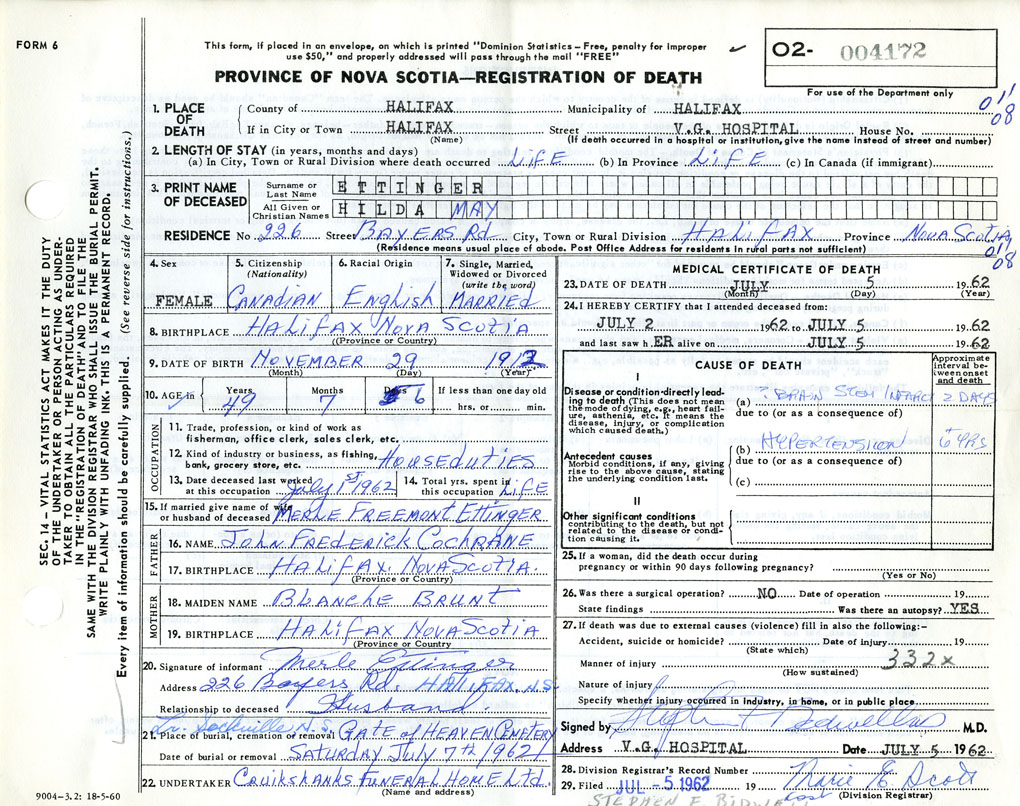 FORM 6
This form, if placed in an envelope, on which is printed "Dominion Statistics – Free, penalty for improper
use $50," and properly addressed will pass through the mail "FREE"
O2- 004172
For use of the Department only
PROVINCE OF NOVA SCOTIA—REGISTRATION OF DEATH
011
08
1. PLACE OF DEATH
County of HALIFAX Municipality of HALIFAX
If in City or Town HALIFAX Street V.G. HOSPITAL House No.
(Name) (If death occurred in a hospital or institution, give the name instead of street and number)
2. LENGTH OF STAY (in years, months and days)
(a) In City, Town or Rural Division where death occurred LIFE (b) In Province LIFE (c) In Canada (if immigrant)
3. PRINT NAME OF DECEASED
Surname or Last Name ETTINGER
All Given or Christian Names HILDA MAY
RESIDENCE No. 226 Street BAYERS Rd. City, Town or Rural Division HALIFAX Province NOVA SCOTIA
(Residence means usual place of abode. Post Office Address for residents in rural parts not sufficient)
011
08
4. Sex FEMALE
5. Citizenship (Nationality) CANADIAN
6. Racial Origin English
7. Single, Married, Widowed or Divorced (write the word) MARRIED
8. BIRTHPLACE HALIFAX NOVA SCOTIA
(Province or Country)
9. DATE OF BIRTH NOVEMBER 29 1912
(Month) (Day) (Year)
10. AGE in Years 49 Months 7 Days 6 If less than one day old hrs. or min.
OCCUPATION
11. Trade, profession, or kind of work as
fisherman, office clerk, sales clerk, etc.
12. Kind of industry or business, as fishing,
bank, grocery store, etc. HOUSEDUTIES
13. Date deceased last worked
at this occupation July 1st 1962
14. Total yrs. spent in
this occupation LIFE
15. If married give name of wife
or husband of deceased MERLE FREEMONT ETTINGER
FATHER
16. NAME JOHN FREDERICK COCHRANE
17. BIRTHPLACE HALIFAX NOVA SCOTIA.
(Province or Country)
MOTHER
18. MAIDEN NAME BLANCHE BRUNT
19. BIRTHPLACE HALIFAX NOVA SCOTIA
(Province or Country)
20. Signature of informant Merle Ettinger
Address 226 Bayers Rd. HALIFAX. N.S.
Relationship to deceased Husband.
Lr. Sackville N.S.
21. Place of burial, cremation or removal GATE OF HEAVEN CEMETERY
Date of burial or removal SATURDAY JULY 7th 1962
22. UNDERTAKER CRUIKSHANKS FUNERAL HOME Ltd.
(Name and address)
MEDICAL CERTIFICATE OF DEATH
23. DATE OF DEATH JULY 5 1962
(Month) (Day) (Year)
24. I HEREBY CERTIFY that I attended deceased from:
JULY 2 1962 to JULY 5 1962
and last saw h ER alive on JULY 5 1962
CAUSE OF DEATH
Approximate interval between onset and death
I
Disease or condition directly leading to death (This does not mean
the mode of dying, e.g., heart failure, asthenia, etc. It means the
disease, injury, or complication
which caused death.)
(a) ? BRAIN STEM INFARCT 2 DAYS
due to (or as a consequence of)
Antecedent causes
Morbid conditions, if any, giving
rise to the above cause, stating
the underlying condition last.
(b) HYPERTENSION 6 YRS
due to (or as a consequence of)
(c)
II
Other significant conditions
contributing to the death, but not
related to the disease or condition causing it.
25. If a woman, did the death occur during
pregnancy or within 90 days following pregnancy?
(Yes or No)
26. Was there a surgical operation? NO Date of operation 19
State findings Was there an autopsy? YES
27. If death was due to external causes (violence) fill in also the following:-
Accident, suicide or homicide? Date of injury 19
(State which)
Manner of injury 332x
(How sustained)
Nature of injury
Specify whether injury occurred in industry, in home, or in public place
Signed by Stephen F. Bidwell M.D.
Address V.G. HOSPITAL Date JULY 5 1962
28. Division Registrar's Record Number
29. Filed JUL - 5 1962 19 Marie E. Scott
(Division Registrar)
STEPHEN F. BIDWELL
SEC. 14 — VITAL STATISTICS ACT MAKES IT THE DUTY
OF THE UNDERTAKER OR PERSON ACTING AS UNDERTAKER TO OBTAIN ALL THE PARTICULARS REQUIRED
IN THE "REGISTRATION OF DEATH" AND TO FILE THE
SAME WITH THE DIVISION REGISTRAR WHO SHALL ISSUE THE BURIAL PERMIT.
WRITE PLAINLY WITH UNFADING INK. THIS IS A PERMANENT RECORD.
Every item of information should be carefully supplied. (See reverse side for instructions.)
9004-3.2: 18-5-60